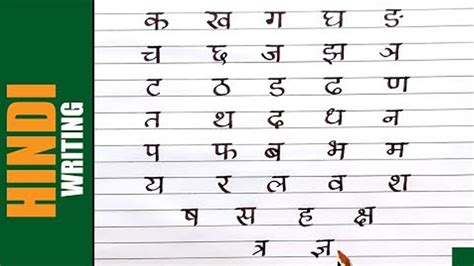 HINDI
WRITING
क ख ग घ ङ
च छ ज झ ञ
ट ठ ड ढ ण
त थ द ध न
प फ ब भ म
य र ल व श
ष स ह क्ष
त्र ज्ञ